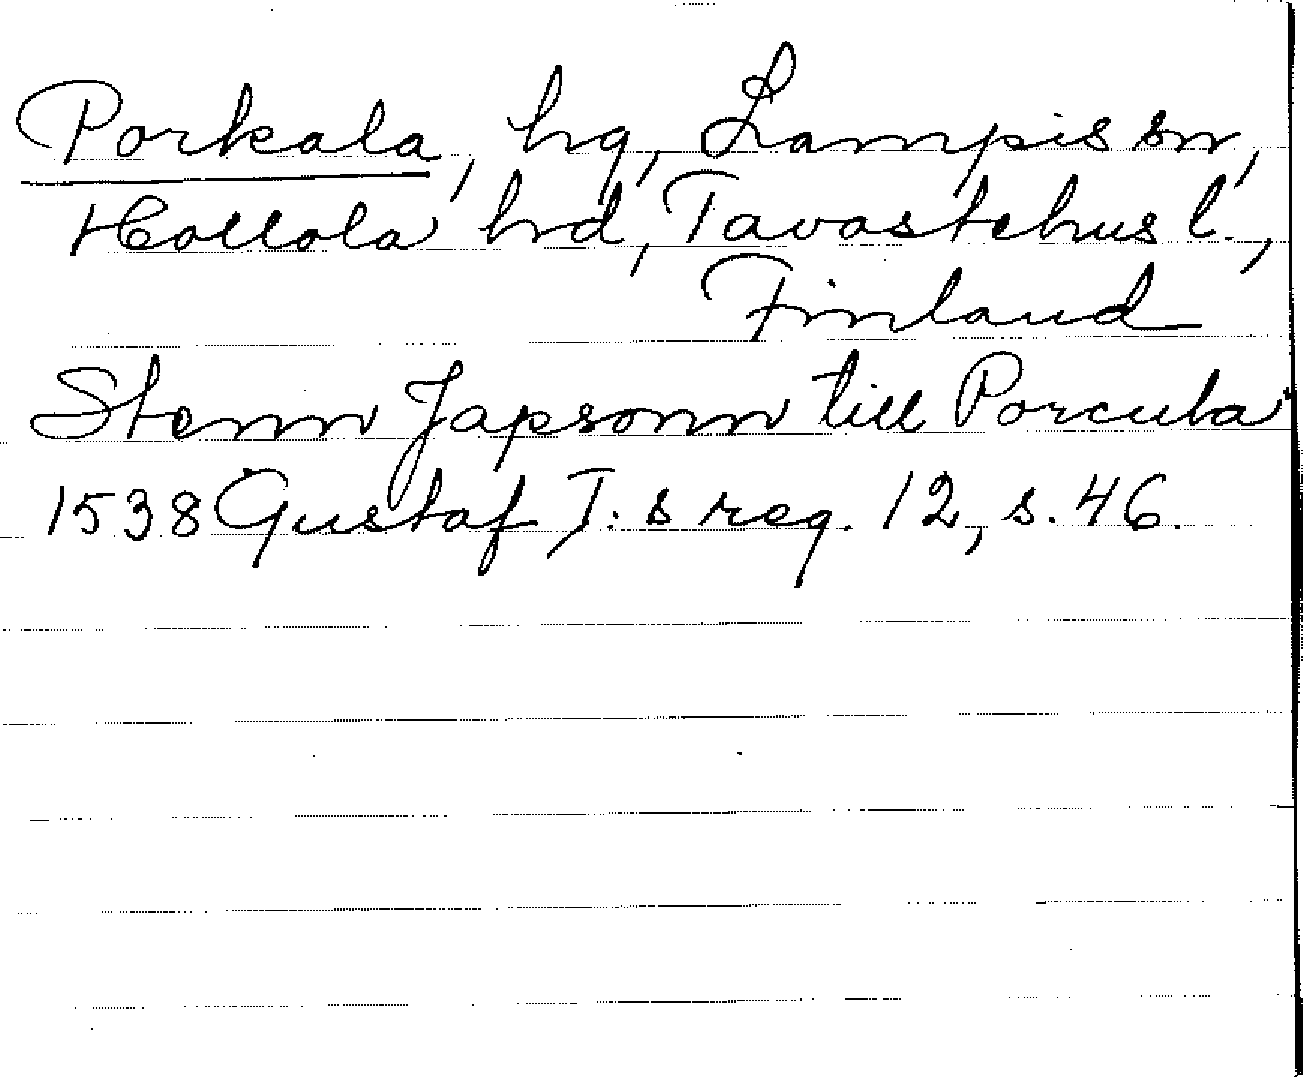 Porkala, hg, Lampis sn,
Hollola hd, Tavastehus l.,
Finland
Stenn Japsonn till Porcula
1538 Gustaf I:s reg. 12, s. 46.